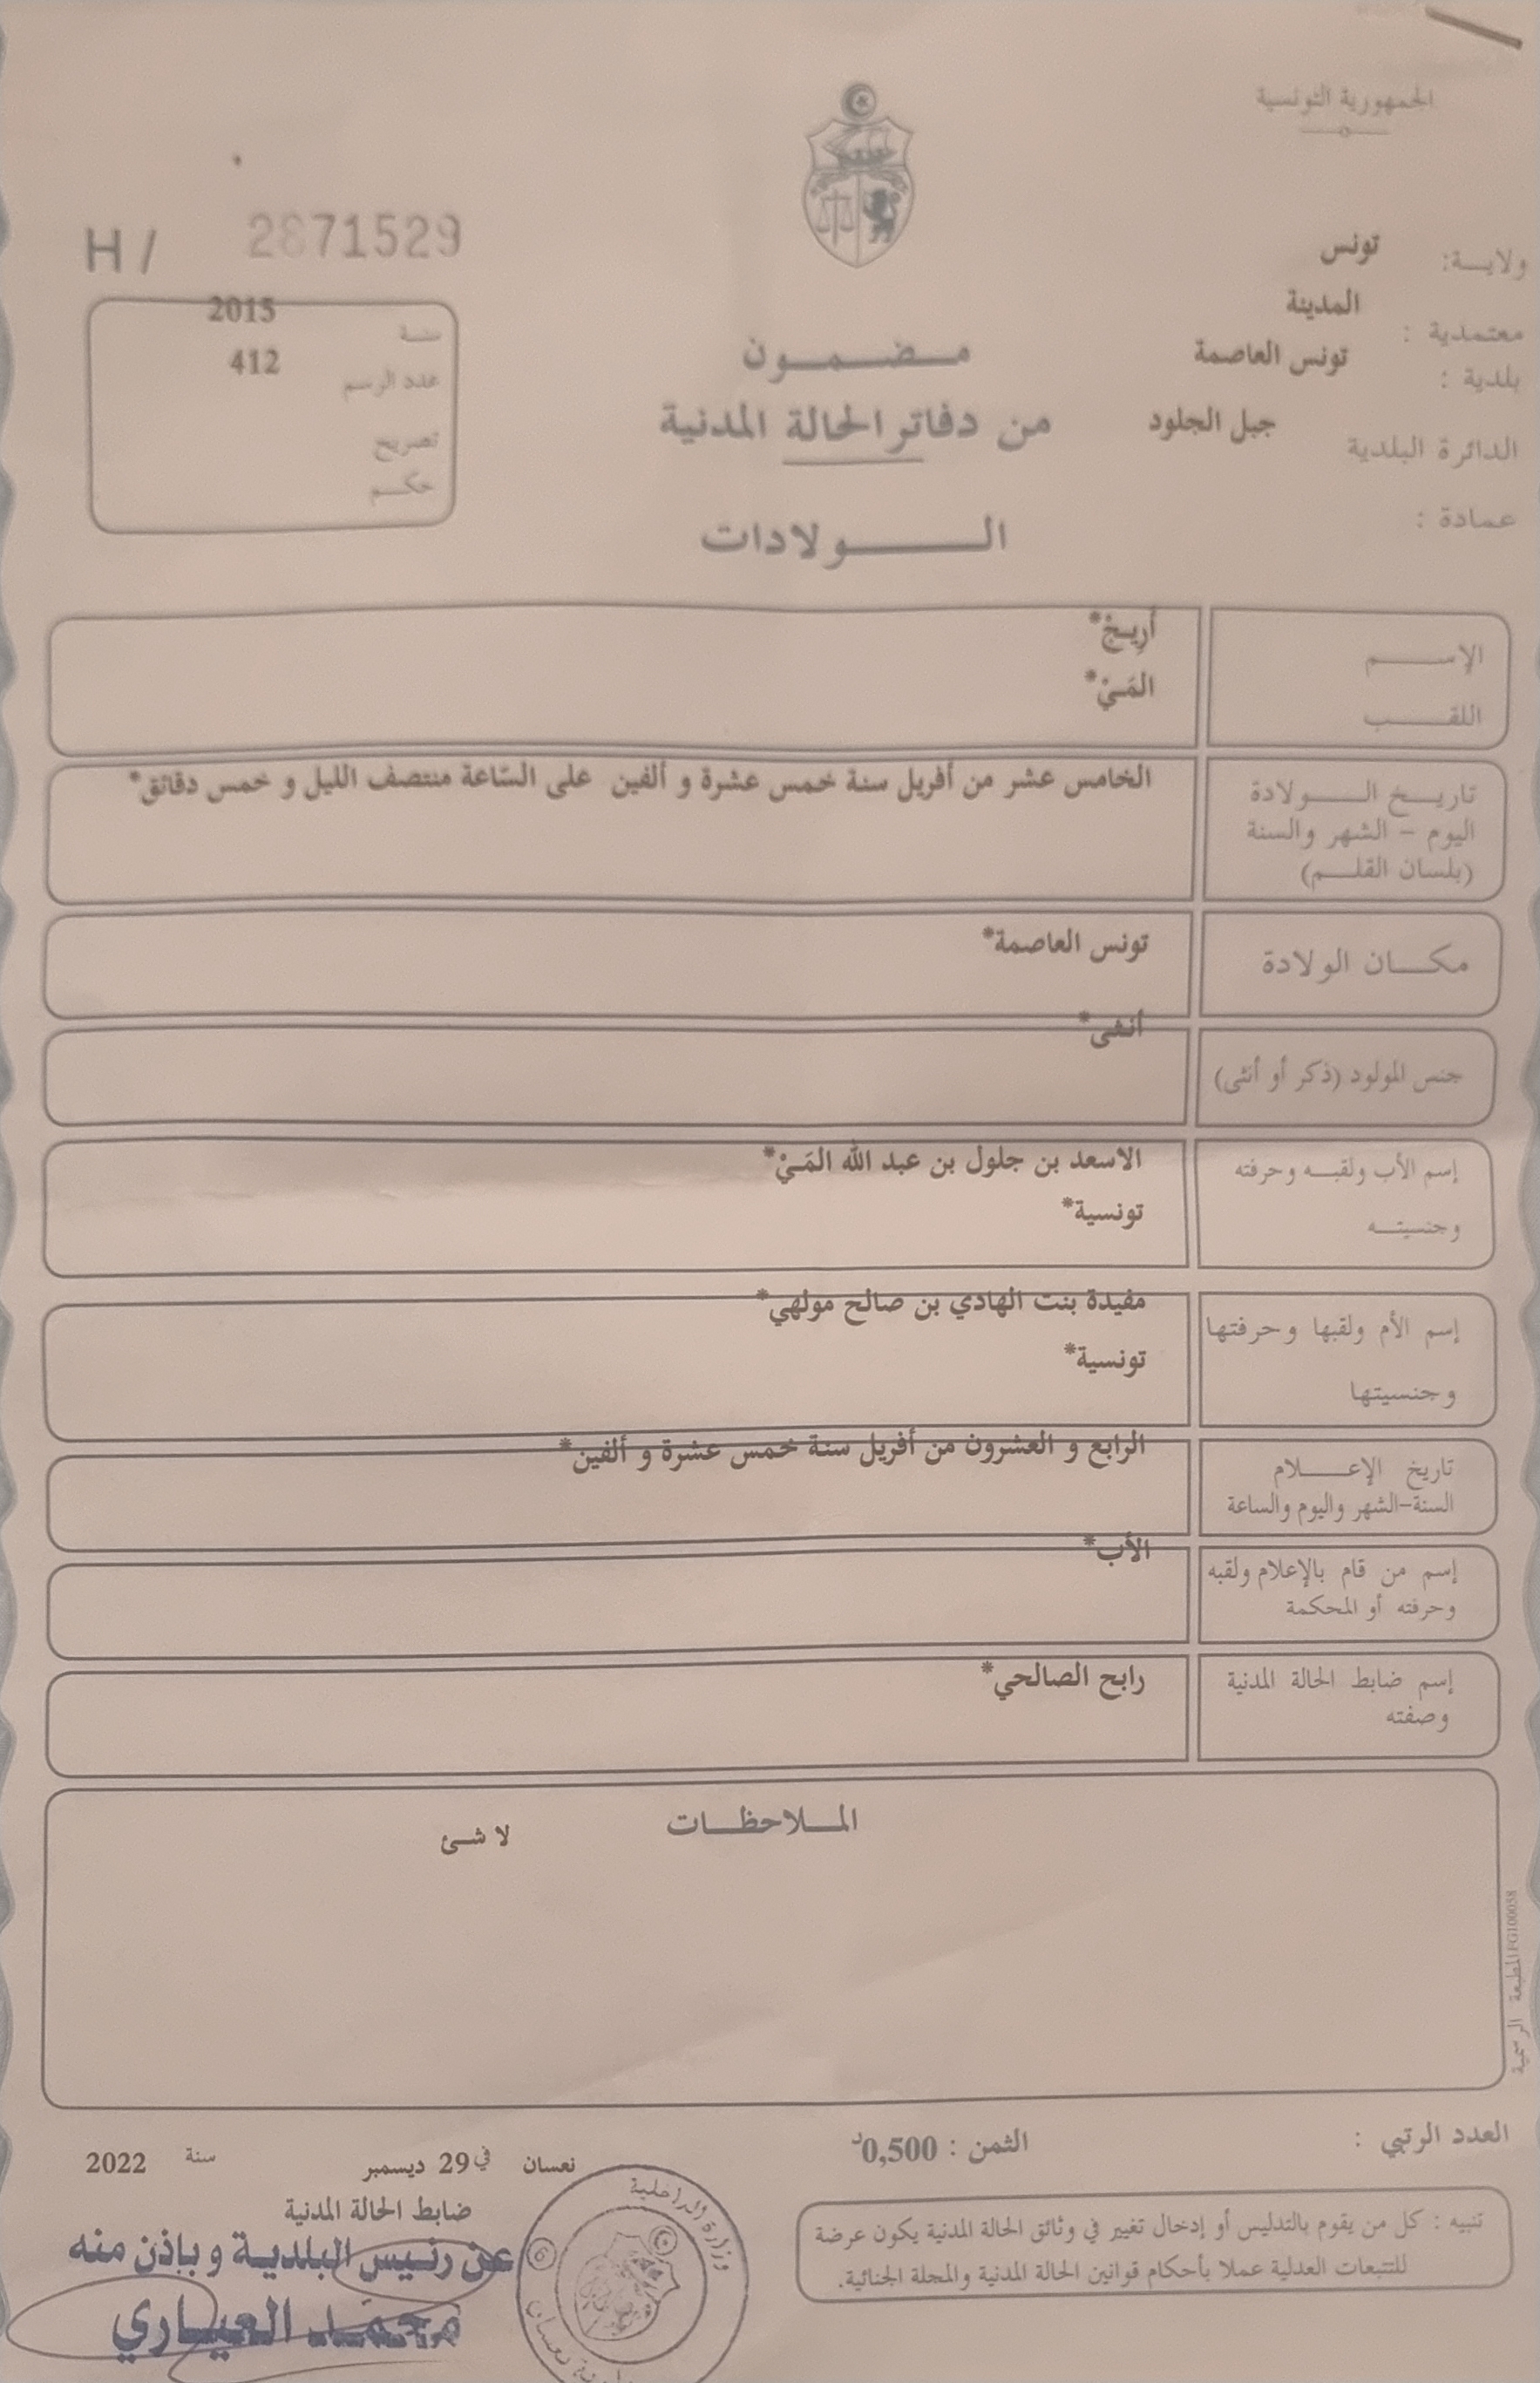 الجمهورية التونسية
ولايـــة: تونس
معتمدية : المدينة
بلدية : تونس العاصمة
الدائرة البلدية جبل الجلود
عمادة :
H / 2871529
سنـة 2015
عدد الرسم 412
تصريح
حكـــم
مـــضـــمـــون
من دفاتر الحالة المدنية
الـــــــولادات
الإســــــم أَرِيـجْ*
اللقـــــب المَـيْ*
تاريــخ الـــــولادة الخامس عشر من أفريل سنة خمس عشرة و ألفين على السّاعة منتصف الليل و خمس دقائق*
اليوم - الشهر والسنة
(بلسان القلـــم)
مكـــان الولادة تونس العاصمة*
جنس المولود (ذكر أو أنثى) أنثى*
إسم الأب ولقبـــه وحرفته الاسعد بن جلول بن عبد الله المَـيْ*
وجنسيتـــه تونسية*
إسم الأم ولقبها وحرفتها مفيدة بنت الهادي بن صالح مولهي*
وجنسيتها تونسية*
تاريخ الإعــــــلام الرابع و العشرون من أفريل سنة خمس عشرة و ألفين*
السنة-الشهر واليوم والساعة
إسم من قام بالإعلام ولقبه الأب*
وحرفته أو المحكمة
إسم ضابط الحالة المدنية رابح الصالحي*
وصفته
المـــلاحظـــات
لا شئ
المطبعة الرسمية
العدد الرتبي :
الثمن : 0,500د
نعسان في 29 ديسمبر سنة 2022
ضابط الحالة المدنية
عن رئيس البلدية وبإذن منه
محمد العياري
وزارة الداخلية
نعسان
تنبيه : كل من يقوم بالتدليس أو إدخال تغيير في وثائق الحالة المدنية يكون عرضة
للتتبعات العدلية عملا بأحكام قوانين الحالة المدنية والمجلة الجنائية.